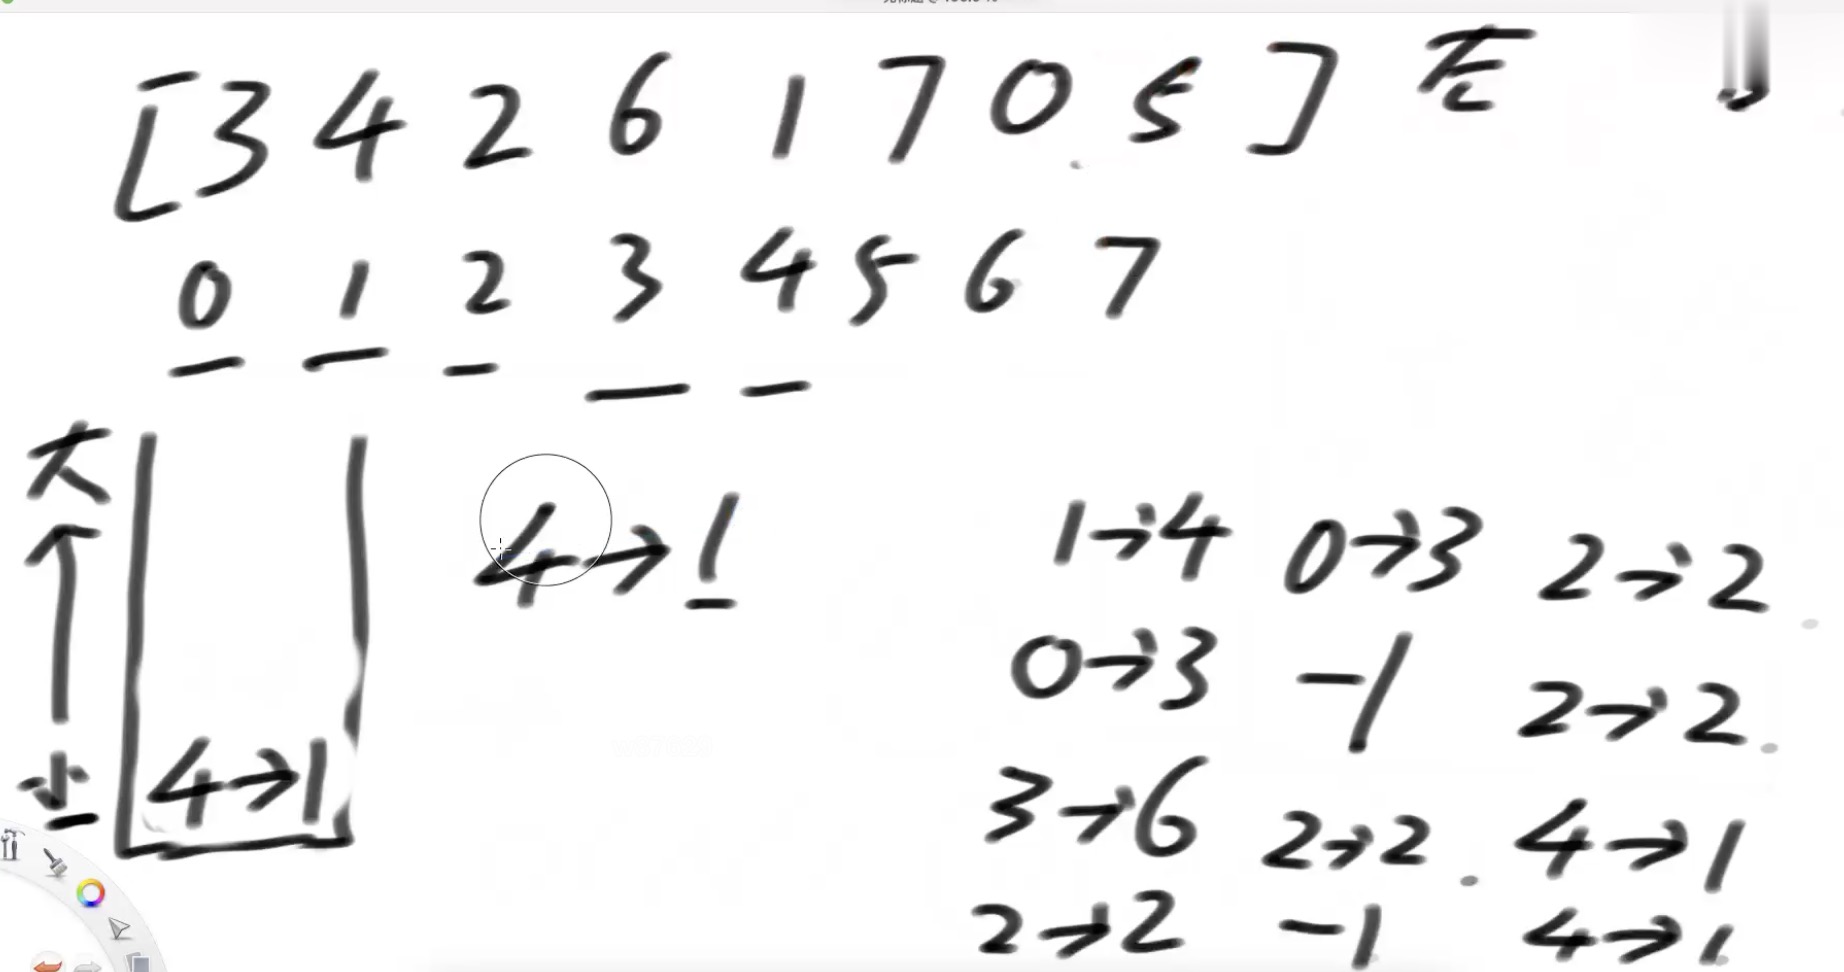 [3 4 2 6 1 7 0 5] 左
0 1 2 3 4 5 6 7
大
4→1
小
4→1
1→4 0→3 2→2
0→3 -1 2→2
3→6 2→2 4→1
2→2 -1 4→1